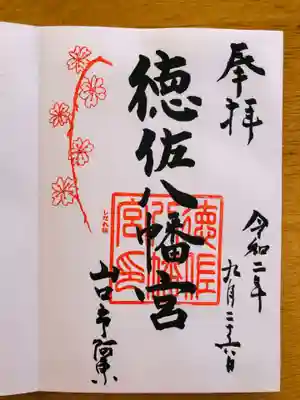 奉拝
令和二年
九月二十六日
徳佐八幡宮
徳佐八幡宮印
しだれ桜
山口市阿東